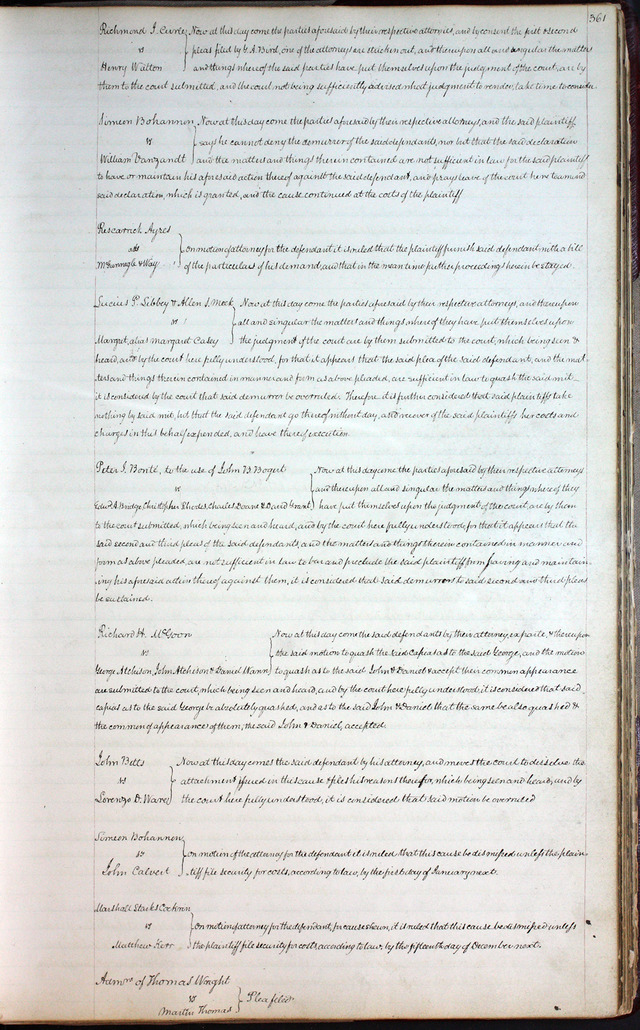 361
Richmond J. Curle Now at this day come the parties aforesaid by their respective attornies, and by consent the first & second
vs pleas filed by G. A. Bird, one of the attornies are stricken out, and thereupon all and singular the matters
Henry Walton and things whereof the said parties have put themselves upon the judgment of the court, are by
them to the court submitted, and the court not being sufficiently advised what judgment to render, take time to consider
Simeon Bohannon Now at this day come the parties aforesaid by their respective attorneys, and the said plaintiff
vs says he cannot deny the demurrer of the said defendants, nor but that the said declaration
William Vanzandt and the matters and things therein contained are not sufficient in law for the said plaintiff
to have or maintain his aforesaid action thereof against the said defendant, and prays leave of the court here to amend
said declaration, which is granted, and the cause continued at the costs of the plaintiff
Rescarrick Ayres
ads on motion of attorney for the defendant it is ruled that the plaintiff furnish said defendant with a bill
McGunnegle & Way of the particulars of his demand, and that in the mean time further proceedings herein be stayed.
Lucius P. Libbey & Allen S. Meek Now at this day come the parties aforesaid by their respective attorneys, and thereupon
vs all and singular the matters and things whereof they have put themselves upon
Margret, alias Margaret Catey the judgment of the court are by them submitted to the court, which being seen &
heard, and by the court here fully understood, for that it appears that the said plea of the said defendant, and the mat-
ters and things therein contained in manner and form as above pleaded, are sufficient in law to quash the said writ_
it is considered by the court that said demurrer be overruled. Therefore it is further considered that said plaintiffs take
nothing by said writ, but that the said defendant go thereof without day, and recover of the said plaintiffs her costs and
charges in this behalf expended, and have thereof execution.
Peter J. Bonte, to the use of John B. Bogert Now at this day come the parties aforesaid by their respective attorneys
vs and thereupon all and singular the matters and things whereof they
Edwd. A. Bridge, Christopher Rhodes, Charles Doane & David Grant have put themselves upon the judgment of the court, are by them
to the court submitted, which being seen and heard, and by the court here fully understood, for that it appears that the
said second and third pleas of the said defendants, and the matters and things therein contained in manner and
form as above pleaded, are not sufficient in law to bar and preclude the said plaintiff from having and maintain-
ing his aforesaid action thereof against them, it is considered that said demurrers to said second and third pleas
be sustained.
Richard H. McGoon Now at this day come the said defendants by their attorney, exparte, & thereupon
vs the said motion to quash the said Capias as to the said George, and the motion
George Atchison, John Atchison & Daniel Wann to quash as to the said John & Daniel & accept their common appearance
are submitted to the court, which being seen and heard, and by the court here fully understood it is considered that said
capias as to the said George be absolutely quashed, and as to the said John & Daniel that the same be also quashed &
the common appearance of them, the said John & Daniel, accepted.
John Betts Now at this day comes the said defendant by his attorney, and moves the court to dessolve the
vs attachment issued in this cause & files his reasons therefor, which being seen and heard, and by
Lorenzo D. Ware the court here fully understood, it is considered that said motion be overruled
Simeon Bohannon
vs on motion of the attorney for the defendant it is ruled that this cause be dismissed unless the plain-
John Calvert tiff file security for costs, according to law, by the first day of January next.
Marshall Starks Cochran
vs on motion of attorney for the defendant, for cause shewn, it is ruled that this cause be dismissed unless
Matthew Kerr the plaintiff file security for costs, according to law, by the fifteenth day of December next.
Admrs. of Thomas Wright
vs Plea filed
Martin Thomas